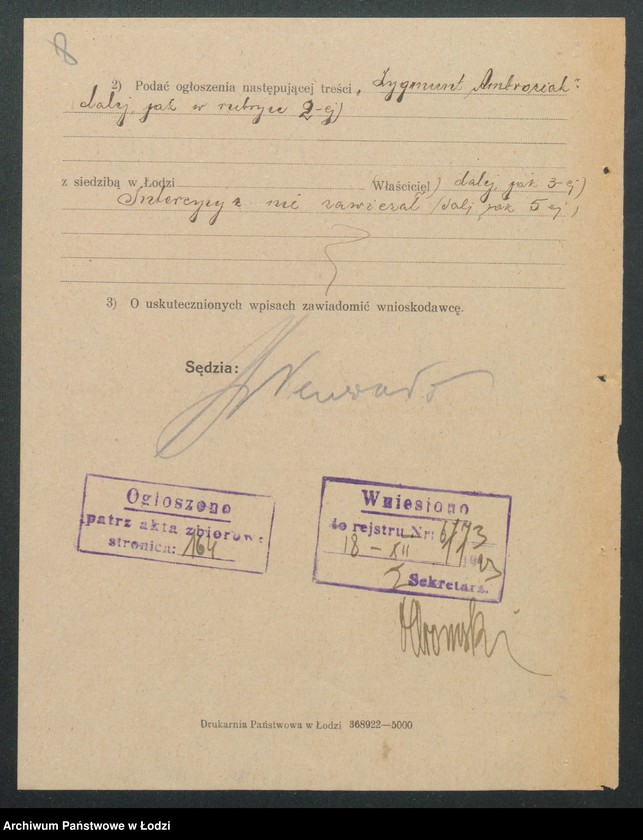 8
2) Podać ogłoszenia następującej treści „Zygmunt Ambroziak"
dalej jak w rubryce 2-ej)
z siedzibą w Łodzi (Właściciel) dalej jak 3-ej)
Intercyzy z nie zawierał (dalj jak 5 ej)
3) O uskutecznionych wpisach zawiadomić wnioskodawcę.
Sędzia:
Ogłoszono
patrz akta zbiorow:
stronica: 164
Wniesiono
do rejstru Nr:
18 - XII
Sekretarz.
Drukarnia Państwowa w Łodzi 368922—5000
Archiwum Państwowe w Łodzi